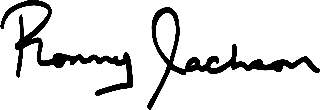 Ronny Jackson